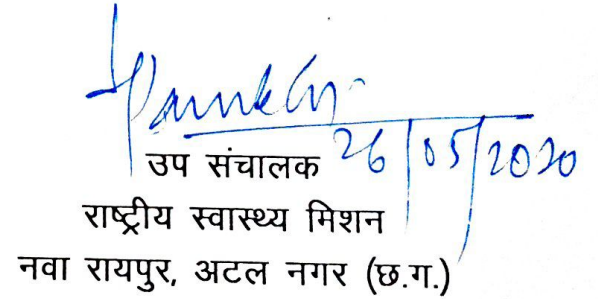 26/05/2020
उप संचालक
राष्ट्रीय स्वास्थ्य मिशन
नवा रायपुर, अटल नगर (छ.ग.)